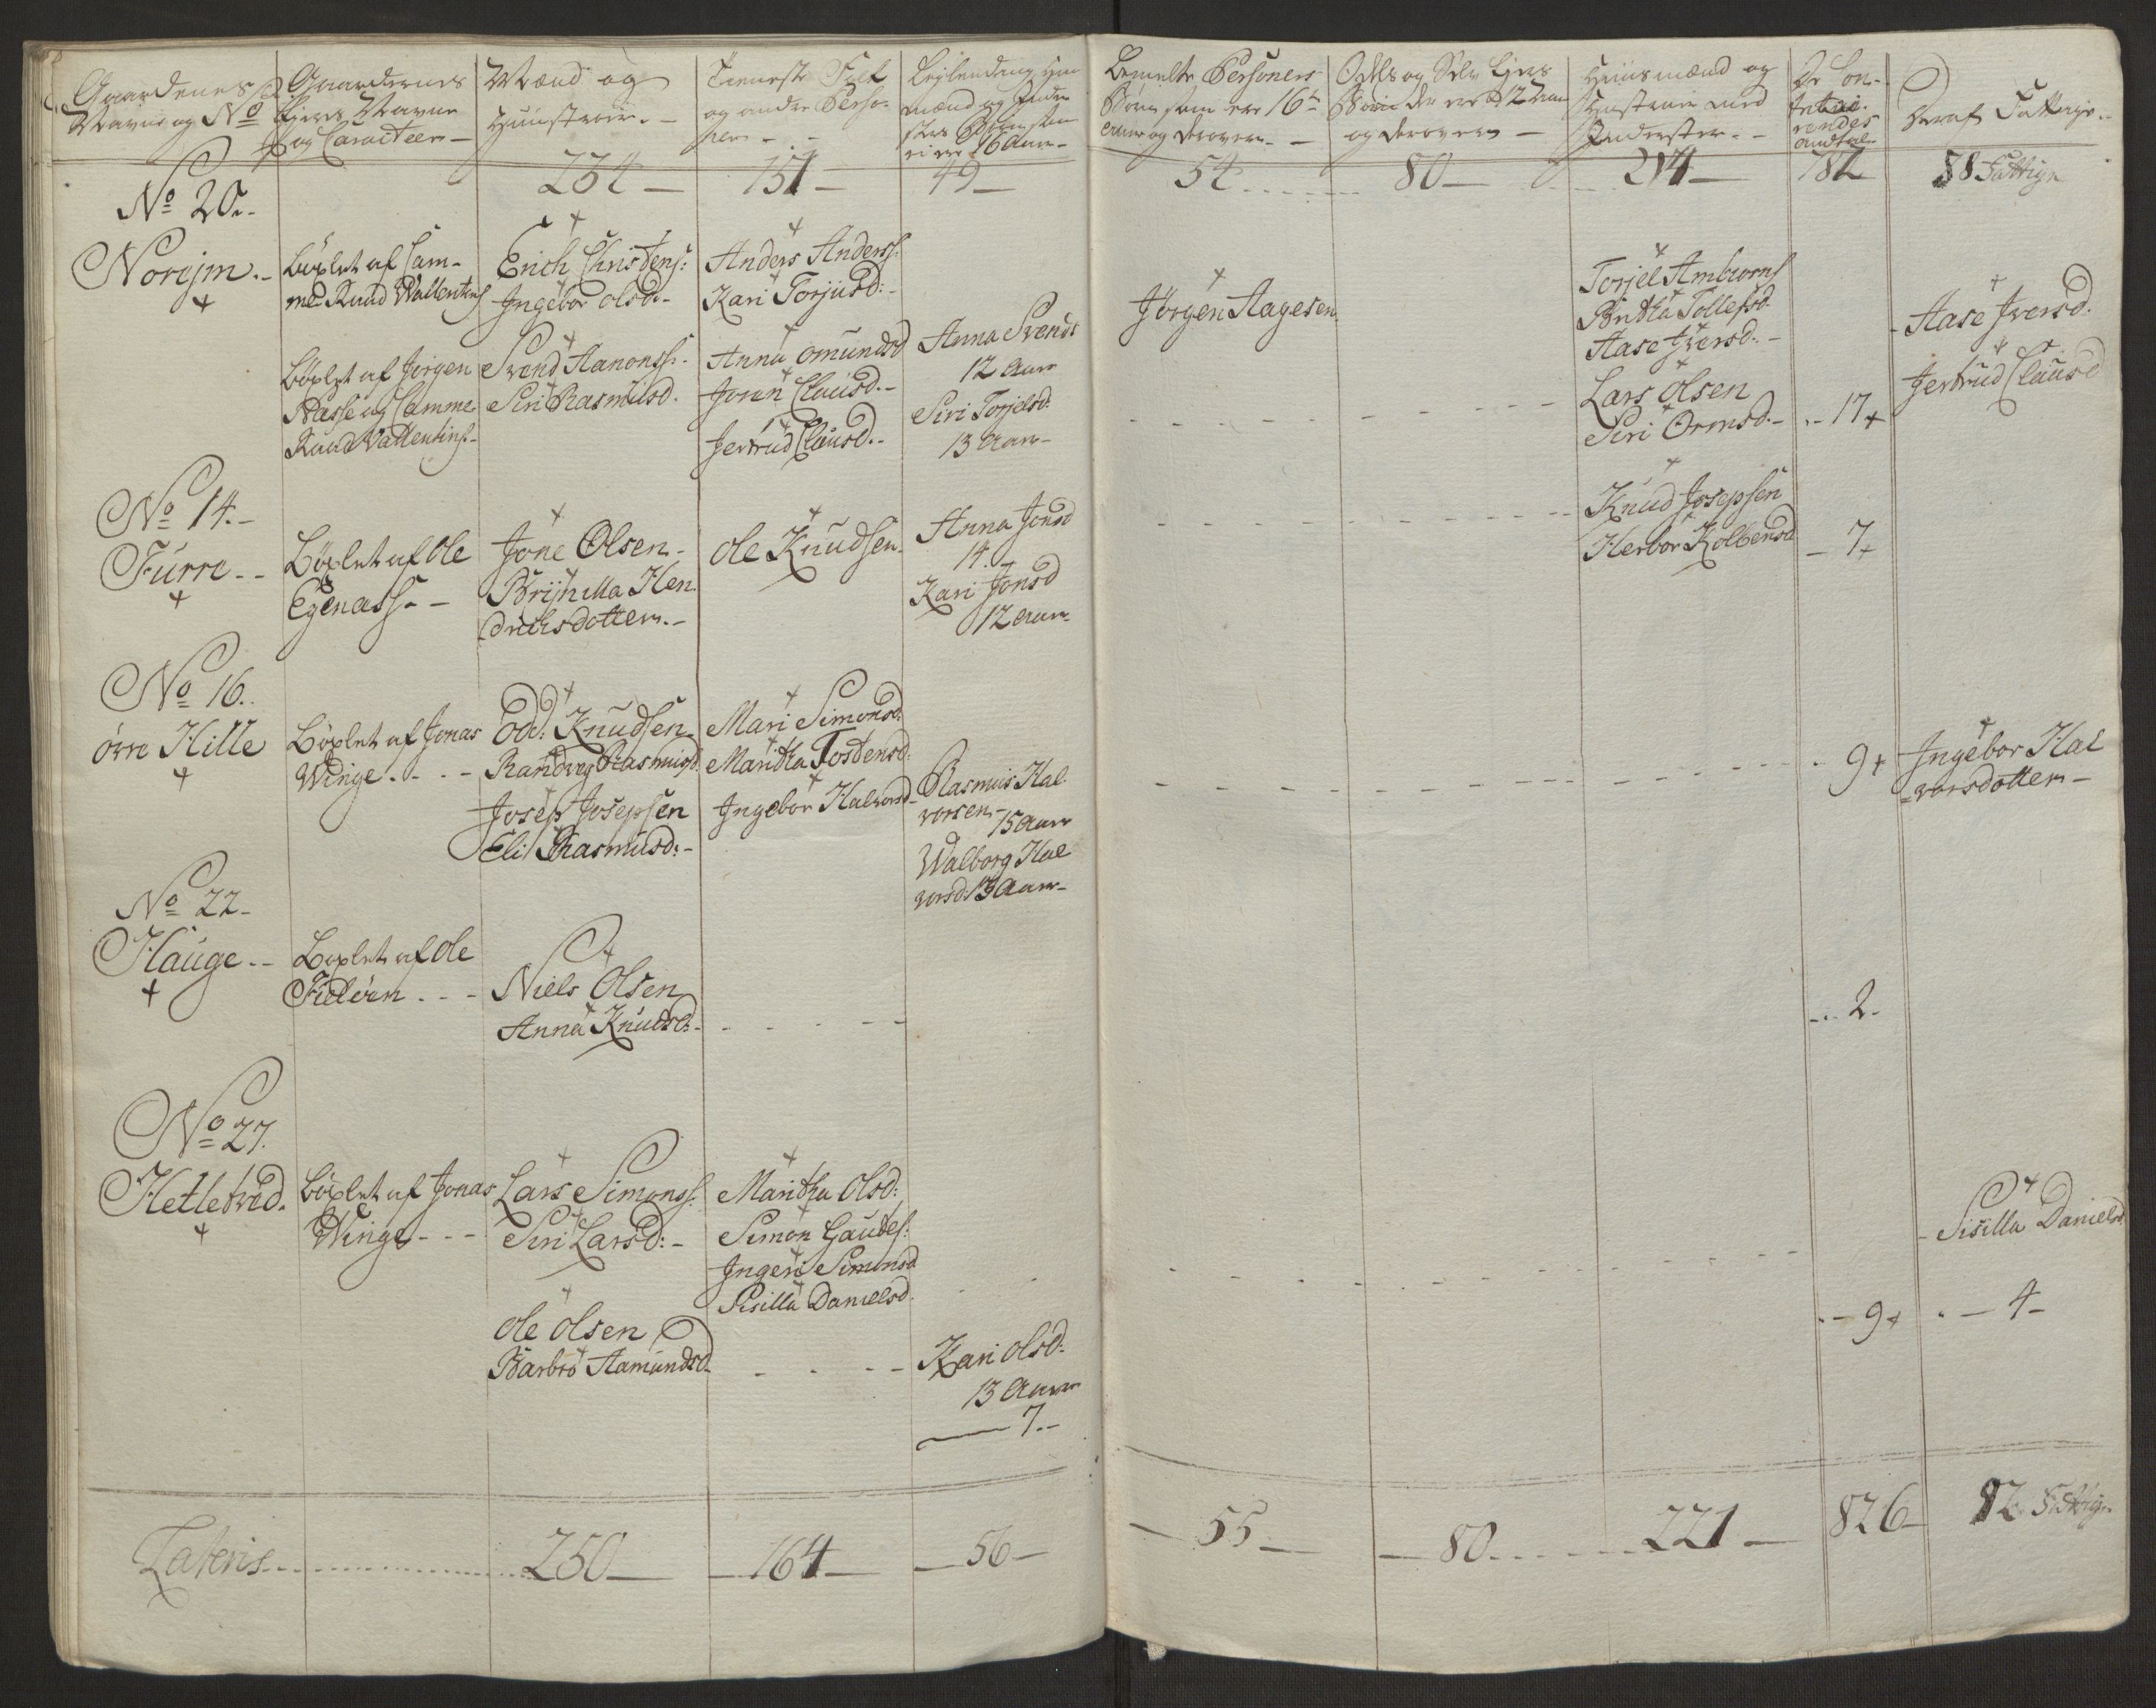 Gaardenes
Navne og No
Gaardernes
Ejers Navne
og Caracteer
Mænd og
Hunstruer
Tieneste Folk
og andre Perso-
ner
16 Aar
Bemelte Personers
Børn som ere 16
og derover
Odels og Selv Ejers
Børn der ere 12 Aar
og derover
Huusmænd og
Hustruer med
Inderster
De Con-
tribui-
rendes
Antal
Heraf Fattige
234
151
49
54
80
214
782
38 Fattige
No 20
Norejm
Böxlet af Cam-
me Ruud Wallentins
Erich Christens:
Ingebor olsd:
Anders Anderss:
Kari Torjusd:
Jörgen Aagesen
Torjel Ambiorns
Britha Tollefsd
Aase Iversd:
Aase Iversd.
Böxlet af Jörgen
og Camme
Ruud Vallentins
Svend Aanonss:
Siri Rasmusd.
Anna omundsd
Joren Clausd.
Jertrud Clausd.
Anna Svends
12 Aar
Siri Torjelsd:
13 Aar
Lars Olsen
Siri Ormsd.
17
Jertrud Clausd
No 14.
Furre
Böxlet af Ole
Egenass
Jone Olsen
Hen
drichsdotter
Ole Knudsen
Anna Jonsd
14.
Kari Jonsd
12 Aar
Knud Josepsen
Herbor Kolbensd
7
No 16.
övre Hille
Böxlet af Jonas
Winge
Odd: Knudsen
Randveg Rasmusd
Josep Josepsen
Eli Rasmusd:
Mari Simonsd:
Maritha Tostensd:
Ingebor Halvorsd
Rasmus Hal
vorsen
15 Aar
Walborg Hal
vorsd: 13 Aar
9
Ingebor Hal
vorsdotter
No 22
Hauge
Böxlet af Ole
Fidiöen
Niels Olsen
Anna Knudsd:
2
No 27.
Hetletvid.
Böxlet af Jonas
Winge
Lars Simonss:
Siri Larsd:
Maritha Olsd:
Simon Gautes:
Ingeri Simonsd
Sisilla Danielsd.
Sisilla Danielsd
Ole Olsen
Barbro Aamundsd
Kari Olsd:
13 Aar
7
9
4
Lateris
250
164
56
55
80
221
826
82 Fattige